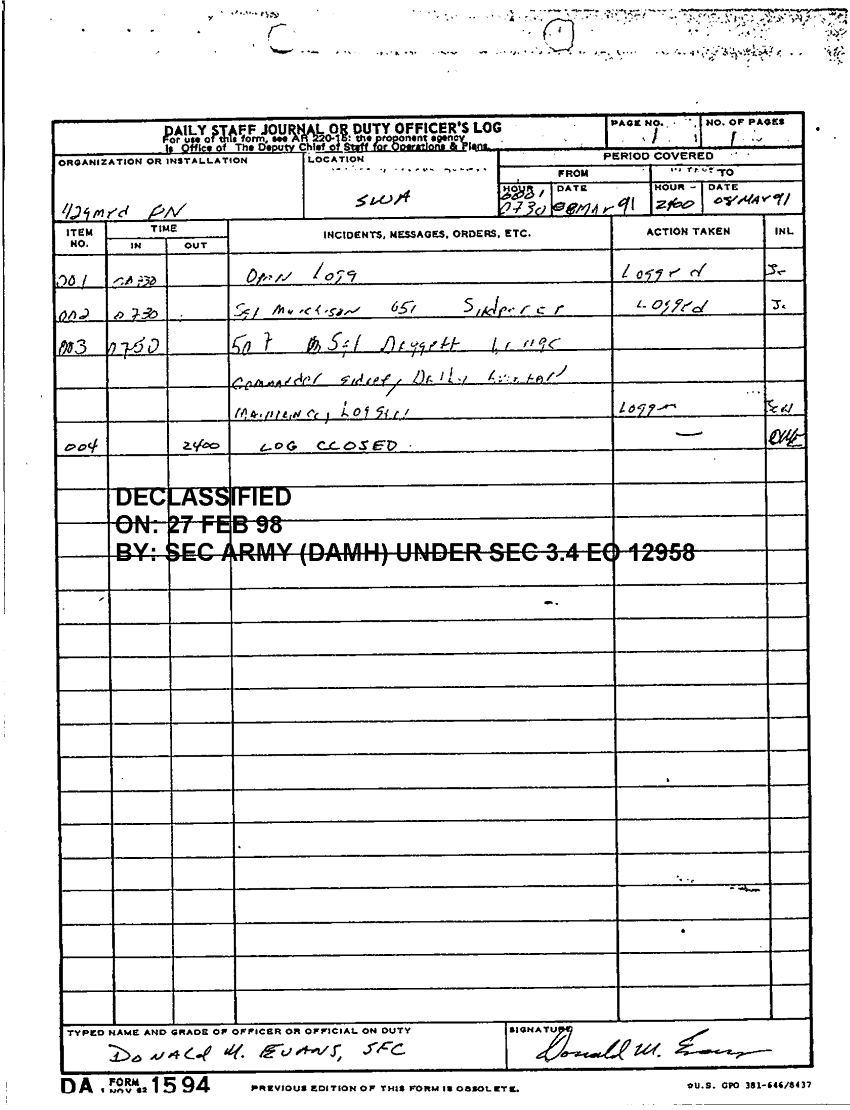 DAILY STAFF JOURNAL OR DUTY OFFICER'S LOG
For use of this form, see AR 220-15; the proponent agency
is Office of The Deputy Chief of Staff for Operations & Plans.
PAGE NO. 1
NO. OF PAGES 1
ORGANIZATION OR INSTALLATION
LOCATION
PERIOD COVERED
FROM
TO
HOUR DATE HOUR DATE
0001
429 med BN SWA 0730 08 MAR 91 2400 08 MAR 91
ITEM NO. TIME INCIDENTS, MESSAGES, ORDERS, ETC. ACTION TAKEN INL
IN OUT
001 0730 Open Logg Logged
002 0730 Sgt Murchison 651 Logged
003 0750 507 Sgt
Commander Daily
004 2400 LOG CLOSED. —
DECLASSIFIED
ON: 27 FEB 98
BY: SEC ARMY (DAMH) UNDER SEC 3.4 EO 12958
TYPED NAME AND GRADE OF OFFICER OR OFFICIAL ON DUTY
DONALD M. EVANS, SFC
SIGNATURE
Donald M. Evans
DA FORM 1594
1 NOV 62
PREVIOUS EDITION OF THIS FORM IS OBSOLETE.
U.S. GPO 381-646/8437